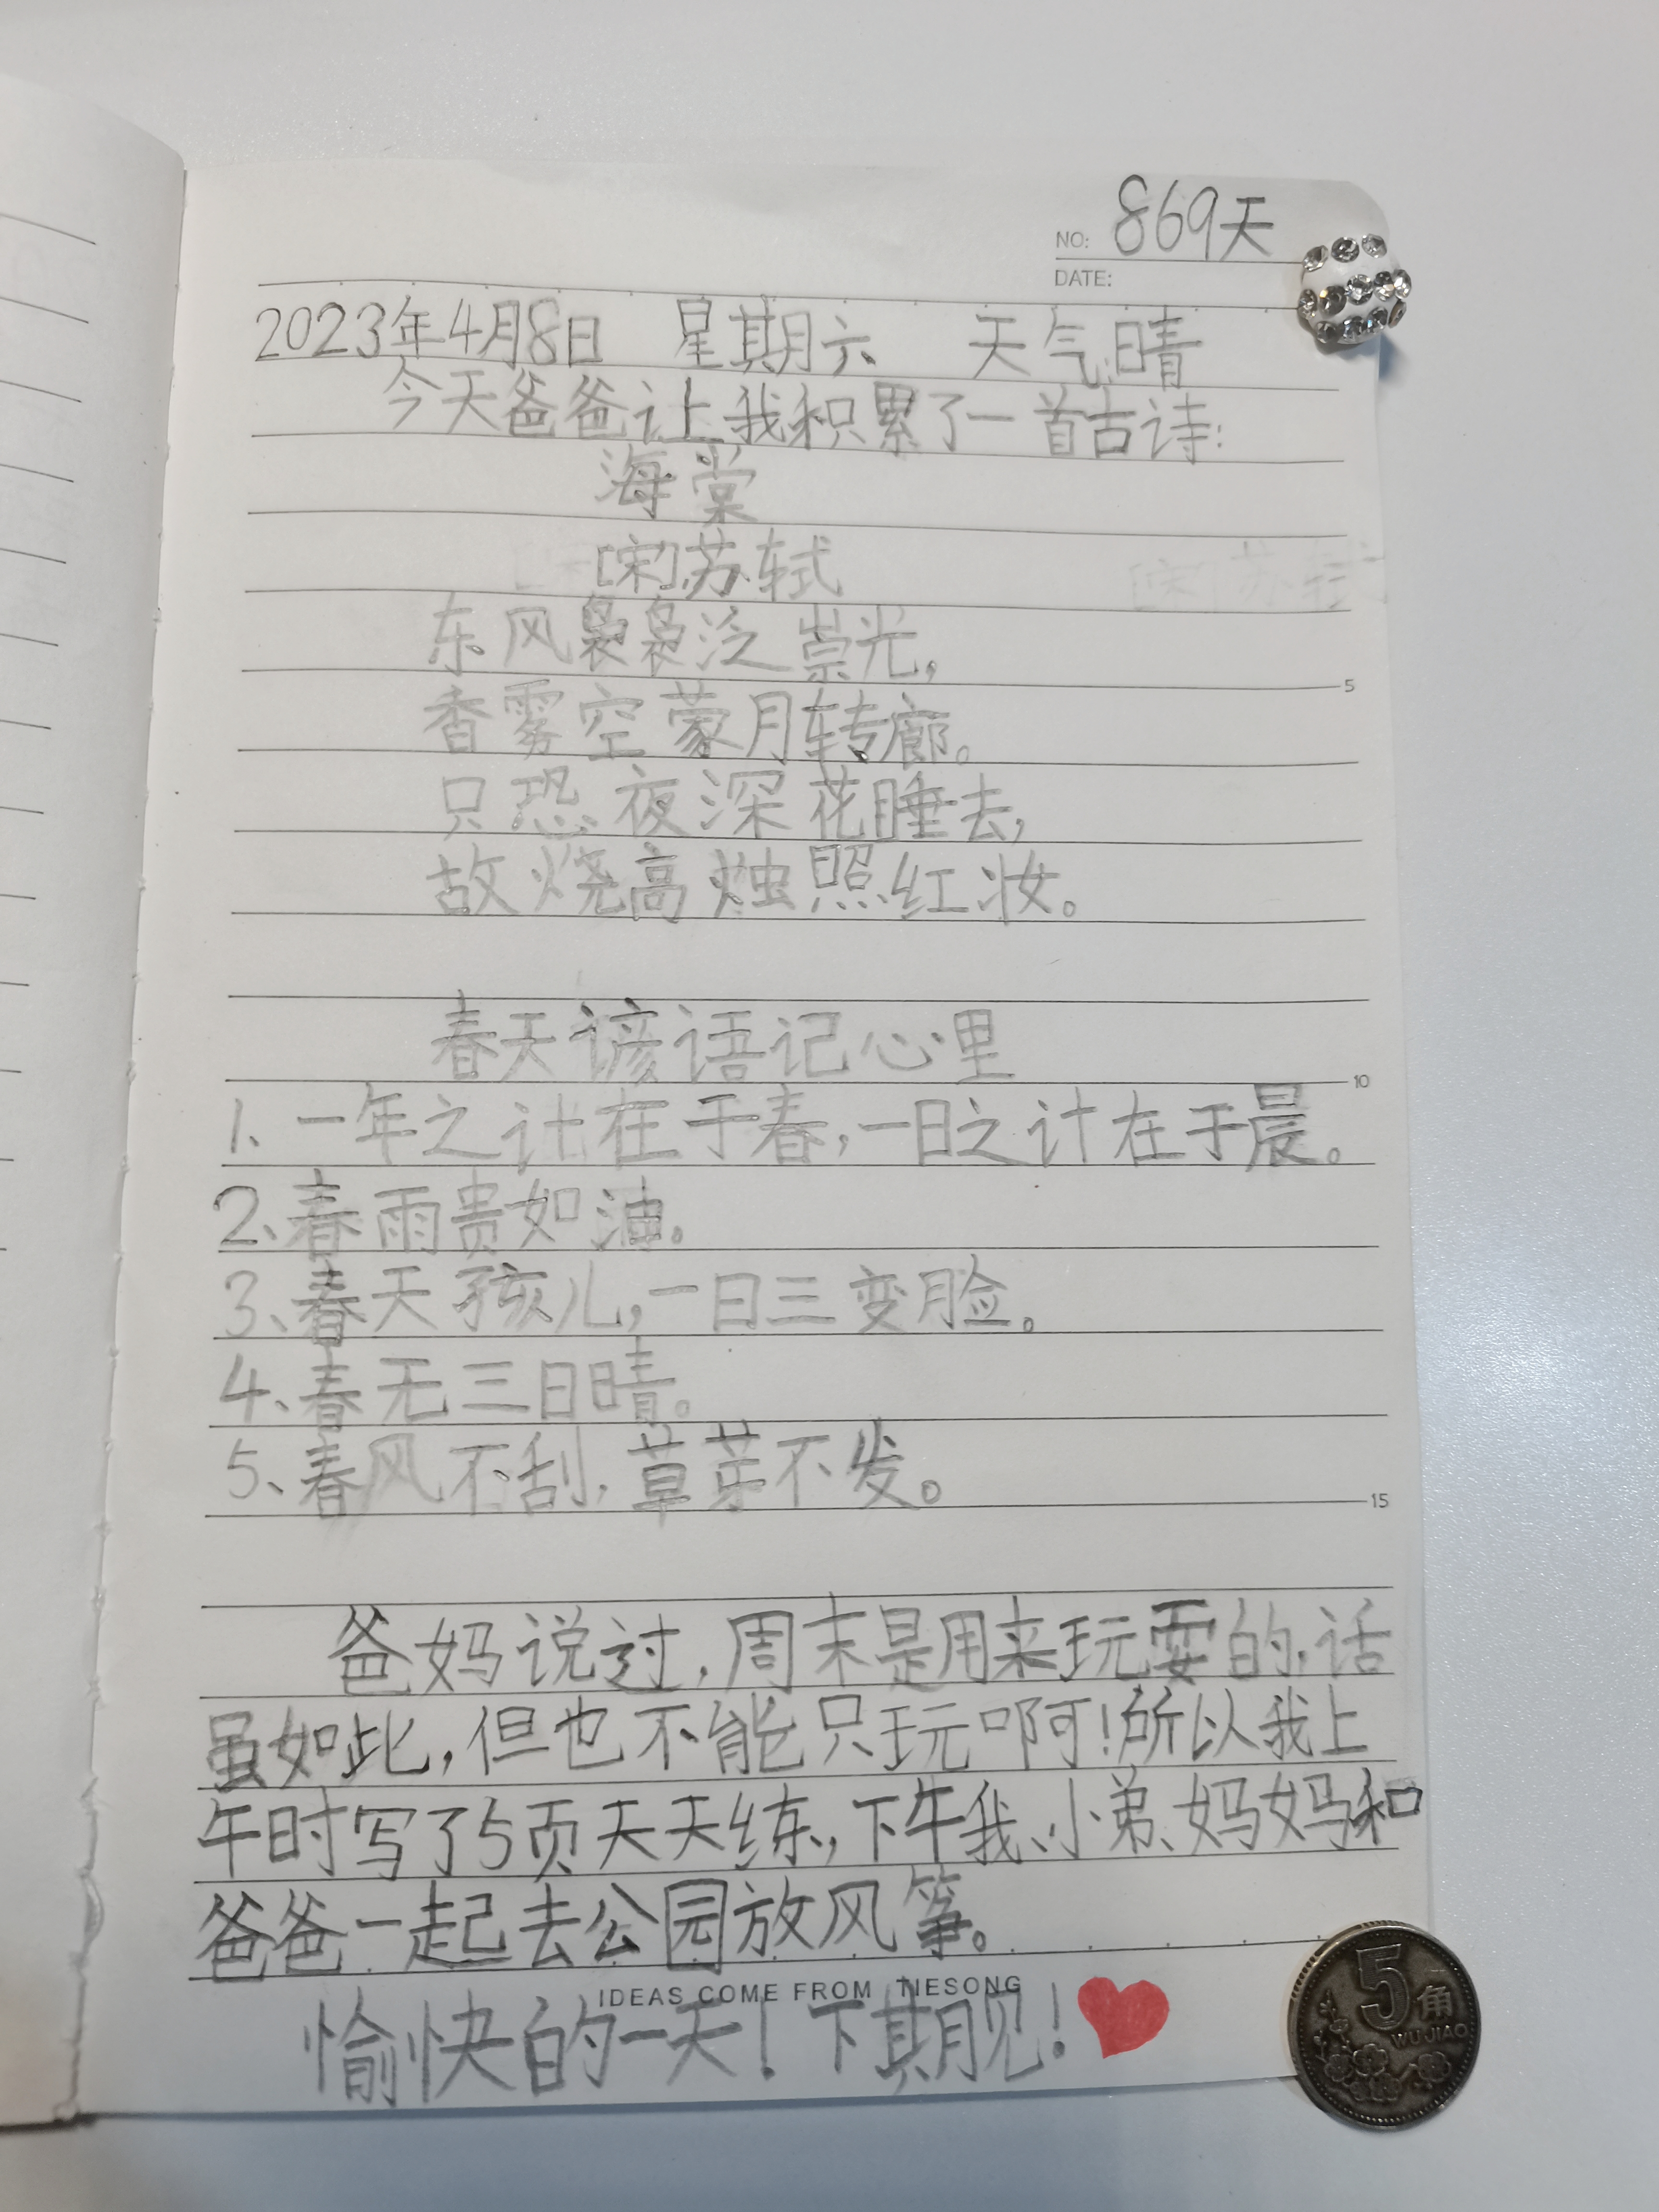 NO: 869天
DATE:
2023年4月8日 星期六 天气晴
今天爸爸让我积累了一首古诗:
海棠
[宋]苏轼
东风袅袅泛崇光,
5
香雾空蒙月转廊。
只恐夜深花睡去,
故烧高烛照红妆。
春天谚语记心里
10
1、一年之计在于春,一日之计在于晨。
2、春雨贵如油。
3、春天孩儿,一日三变脸。
4、春无三日晴。
5、春风不刮,草芽不发。
15
爸妈说过,周末是用来玩耍的,话
虽如此,但也不能只玩啊!所以我上
午时写了5页天天练,下午我、小弟、妈妈和
爸爸一起去公园放风筝。
IDEAS COME FROM TIESONG
愉快的一天!下期见!
5角
WUJIAO